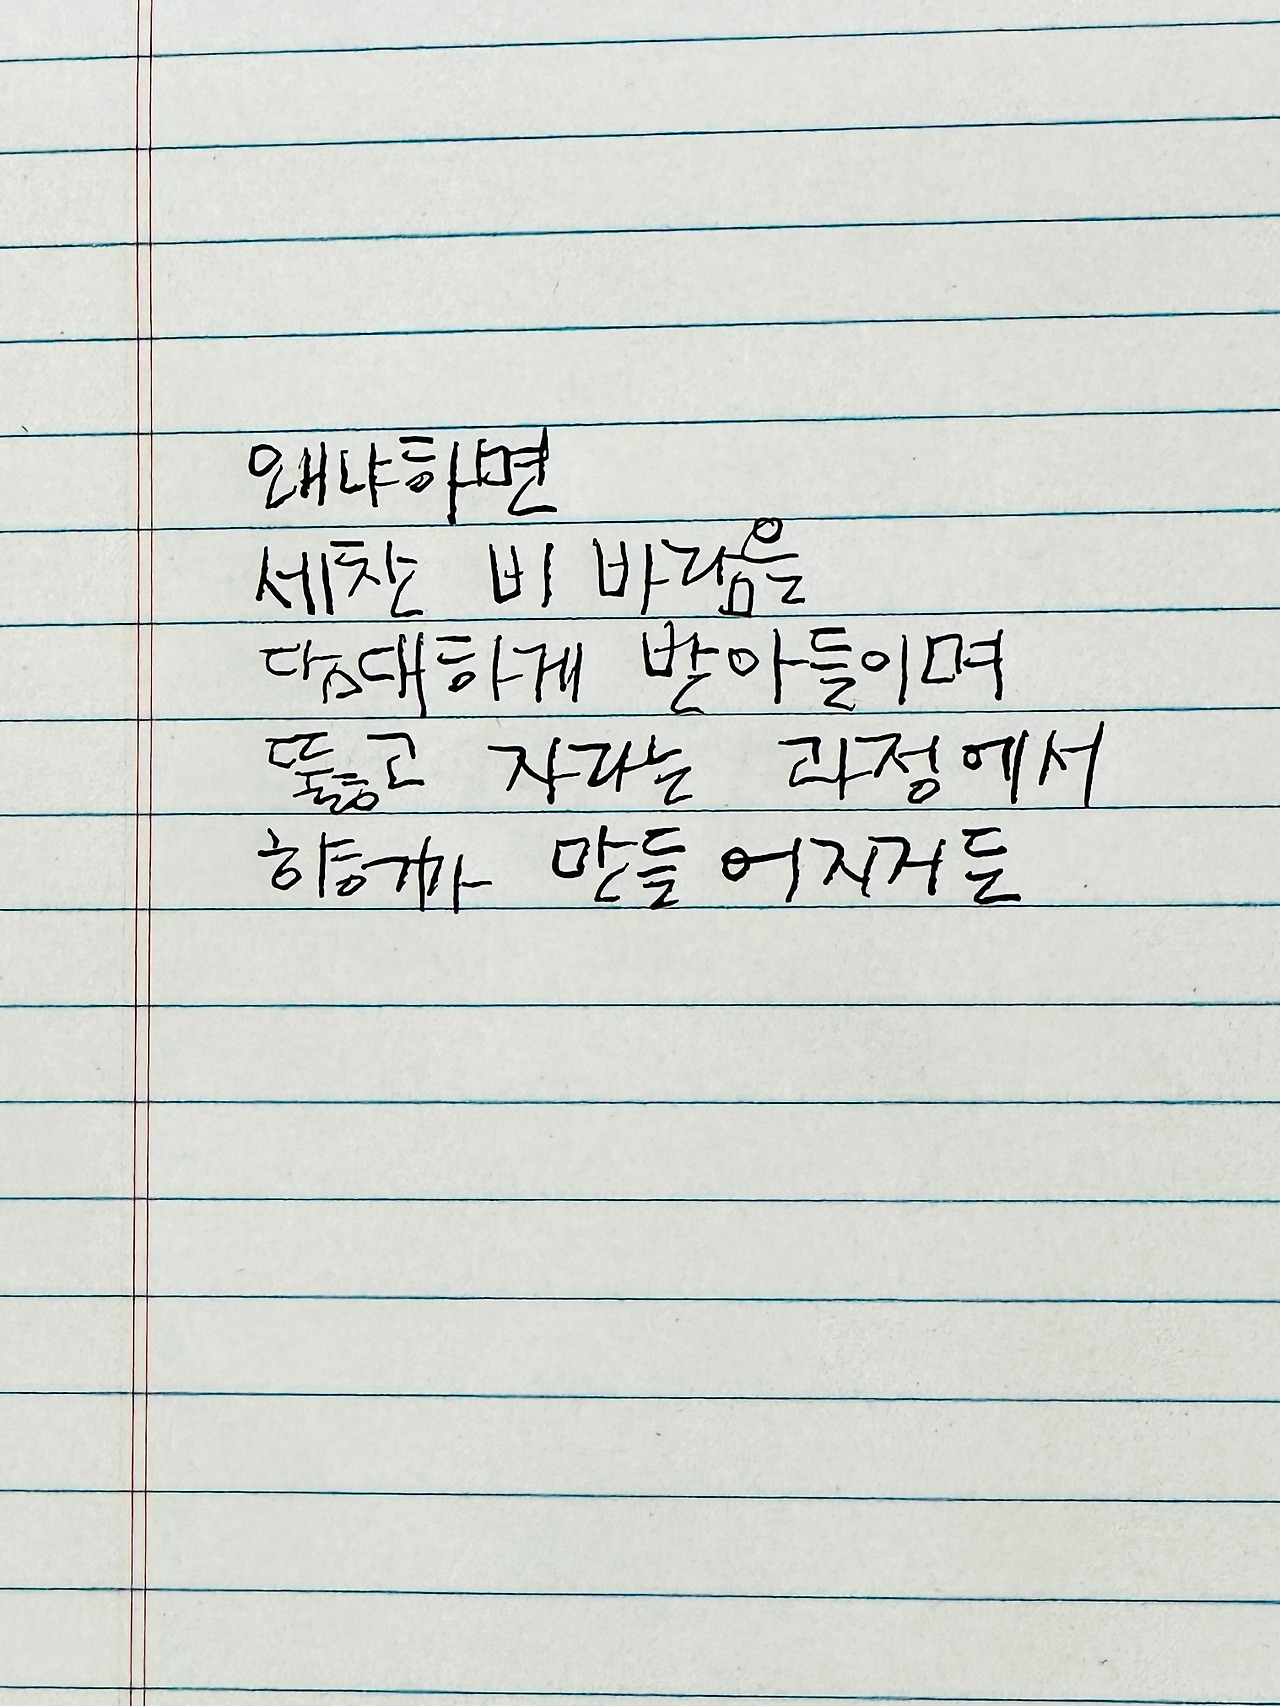 왜냐하면
세찬 비 바람을
담대하게 받아들이며
뚫고 자라는 과정에서
향기가 만들어지거든